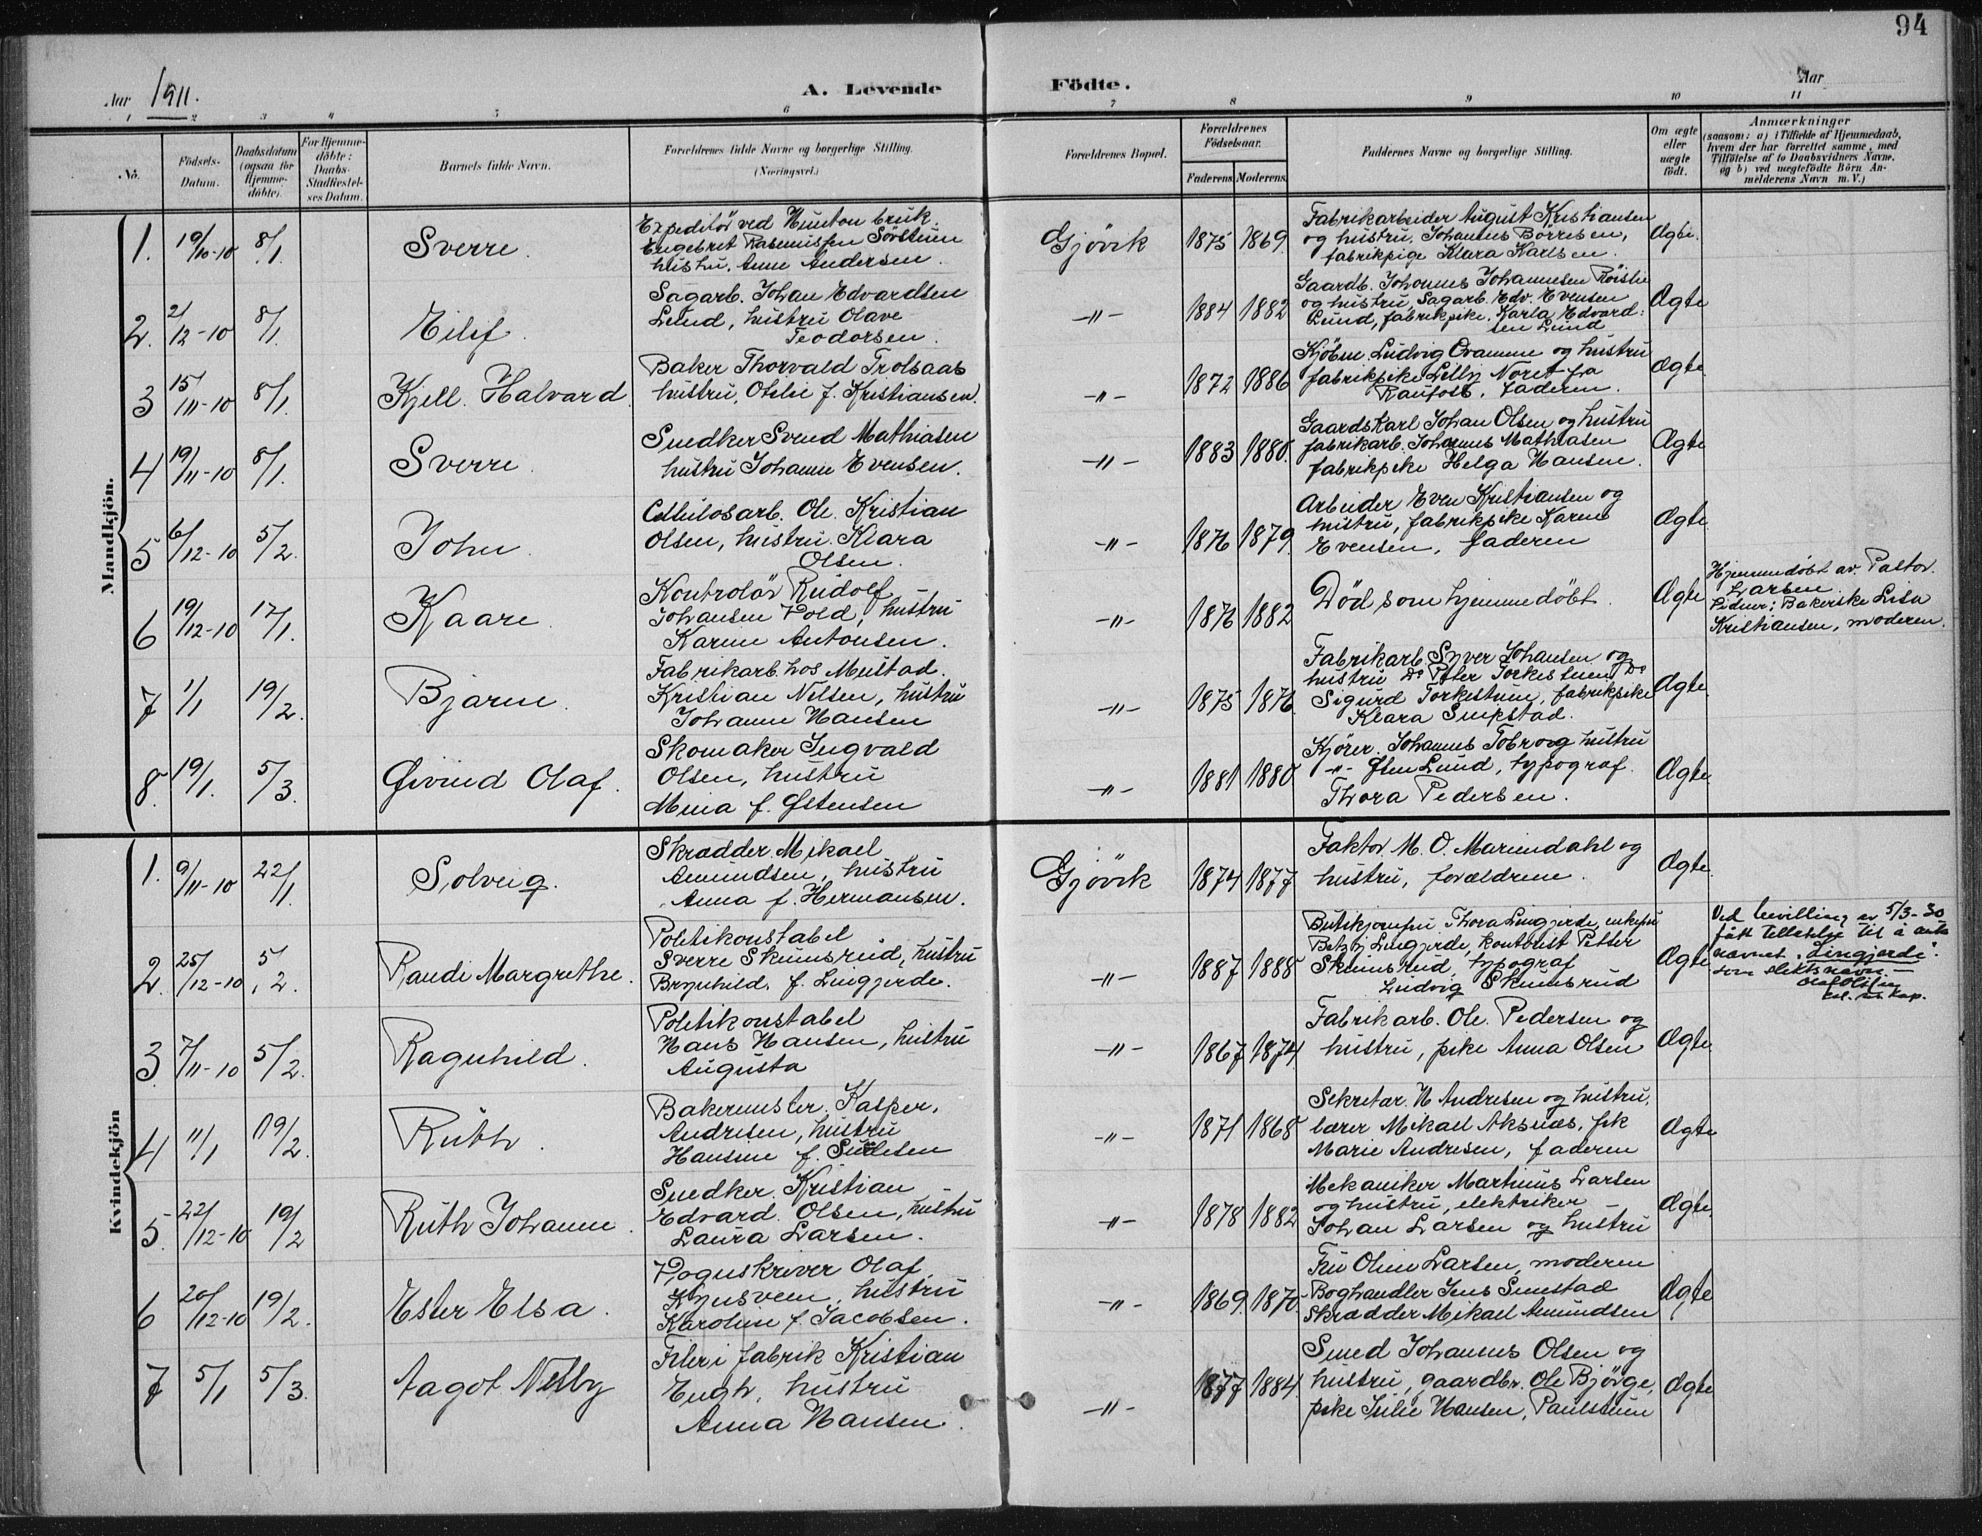 94
Aar 1911.
A. Levende Födte.
Aar
1 2 3 4 5 6 7 8 9 10 11
No.
Födsels-Datum.
Daabsdatum (ogsaa for Hjemme-döbte).
For Hjemme-döbte: Daabs-Stadfæstel-ses Datum.
Barnets fulde Navn.
Forældrenes fulde Navne og borgerlige Stilling. (Næringsvei.)
Forældrenes Bopæl.
Forældrenes Födselsaar.
Faderens. Moderens.
Faddernes Navne og borgerlige Stilling.
Om ægte eller uægte födt.
Anmærkninger
(saasom: a) i Tilfælde af Hjemmedaab, hvem der har forrettet samme, med Tilföielse af to Daabsvidners Navne, og b) ved uægtefödte Börn An-melderens Navn m. V.)
Mandkjön.
1. 19/10-10 8/1. Sverre.
Expeditör ved Hunton bruk.
Engebret Rasmussen Sörstuen
hustru. Anne Andersen.
Gjövik 1875 1869.
Fabrikarbeider August Kristiansen
og hustru. Johannes Börresen,
fabrikpige Klara Karlsen.
Ægte.
2. 2/12-10 8/1. Eilif.
Sagarb. Johan Edvardsen
Lund, hustru Olave
Teodorsen.
-"- 1884 1882
Gaardb. Johannes Johannesen
og hustru, Sagarb. Edv. Evensen
Lund, fabrikpike. Karla Edvard-
sen Lund
Ægte
3 15/11-10 8/1. Kjell Halvard.
Baker Thorvald Trolsaas
hustru. Otilie f. Kristiansen.
-"- 1872 1886
Kjöbm. Ludvig Ovamme og hustru
fabrikpike Lelly Noret fra
Raufoss. faderen.
Ægte
4 19/11-10 8/1. Sverre.
Snedker Svend Mathiasen
hustru Johanne Evensen.
-"- 1883 1880.
Gaardskarl Johan Olsen og hustru
fabrikarb. Johannes Mathiasen
fabrikpike Helga Hansen.
Ægte
5 6/12-10 5/2. John.
Cellulosarb. Ole Kristian
Olsen, hustru. Klara
Olsen.
-"- 1876 1879.
Arbeider Even Kristiansen og
hustru, fabrikpike Karen
Evensen, faderen
Ægte
6 19/12-10 17/1. Kaare.
Kontrolör Rudolf
Johansen Pold, hustru
Karen Antonsen.
-"- 1876 1882
Död som hjemmedöbt.
Ægte
Hjemmedöbt av. Pastor
Larsen
Vidner: Bakerske Lisa
Kristiansen, moderen.
7 1/1 19/2. Bjarne.
Fabrikarb. hos Mustad.
Kristian Nilsen, hustru
Johanne Hansen
-"- 1875 1876.
Fabrikarb. Syver Johansen og
hustru Do Peter Torkestuen Do
Sigurd Torkestuen, fabrikpike
Klara Smepstad.
Ægte.
8. 19/1. 5/3. Øivind Olaf.
Skomaker Ingvald
Olsen, hustru
Mina f. Østensen
-"- 1881 1880
Kjører. Johannes Tobro og hustru
-"- Østen Lund, typograf.
Thora Pedersen.
Ægte
Kvindekjön
1. 9/11-10 22/1. Solveig.
Skrædder. Mikael
Amundsen, hustru
Anna f. Hermansen.
Gjövik 1874 1877
Faktor M. O. Mariendahl og
hustru, forældrene.
Ægte.
2. 25/12-10 5/2. Randi Margrethe.
Politikonstabel
Sverre Skumsrud, hustru
Brynhild. f. Lingjerde.
-"- 1887 1888
Butikjomfru Thora Lingjerde, enkefru
Betzy Lingjerde, kontorist Petter
Skumsrud, typograf
Ludvig Skumsrud
Ægte
Ved bevilling av 5/3-30
fått tillatelse til å anta
navnet "Lingjerde"
som slektsnavn.-
kap.
3. 7/11-10 5/2. Ragnhild.
Politikonstabel
Hans Hansen, hustru
Augusta
-"- 1867 1874
Fabrikarb. Ole. Pedersen og
hustru, pike Anna Olsen
Ægte.
4 11/1 19/2. Ruth.
Bakermester. Kasper.
Andresen, hustru
Hansine f.
-"- 1871 1868
Sekretær. N Andresen og hustru,
lærer Mikael Aksnæs, frk
Marie Andresen, faderen
Ægte
5. 22/12-10 19/2 Ruth Johanne.
Snedker. Kristian
Edvard. Olsen, hustru
Laura Larsen.
-"- 1878 1882
Mekaniker Martinus Larsen
og hustru, elektriker
Johan Larsen og hustru
Ægte.
6 20/12-10 19/2. Ester Elsa.
Foguskriver Olaf
hustru
Karoline f. Jacobsen.
-"- 1869. 1870
Fru Oline Larsen, moderen
Boghandler Jens Smestad
Skrædder Mikael Amundsen
Ægte
7 5/1 5/3. Aagot Nelly
Filer i fabrik Kristian
Engh, hustru
Anna Hansen.
-"- 1877 1884
Smed Johannes Olsen og
hustru, gaardbr. Ole Bjørge,
pike Julie Hansen, Paulstuen
Ægte